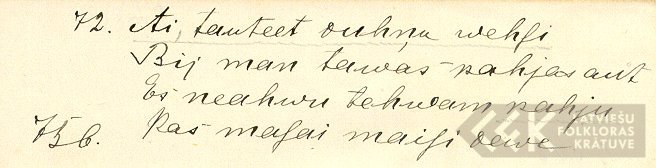 72. Ai, tauteet ouhņu wehfi
Bij man tawas pahjas aut
Es neahwu tehwam pahju
756. Kas mafai maifi dewe
LATVIEŠU
FOLKLORAS
KRĀTUVE